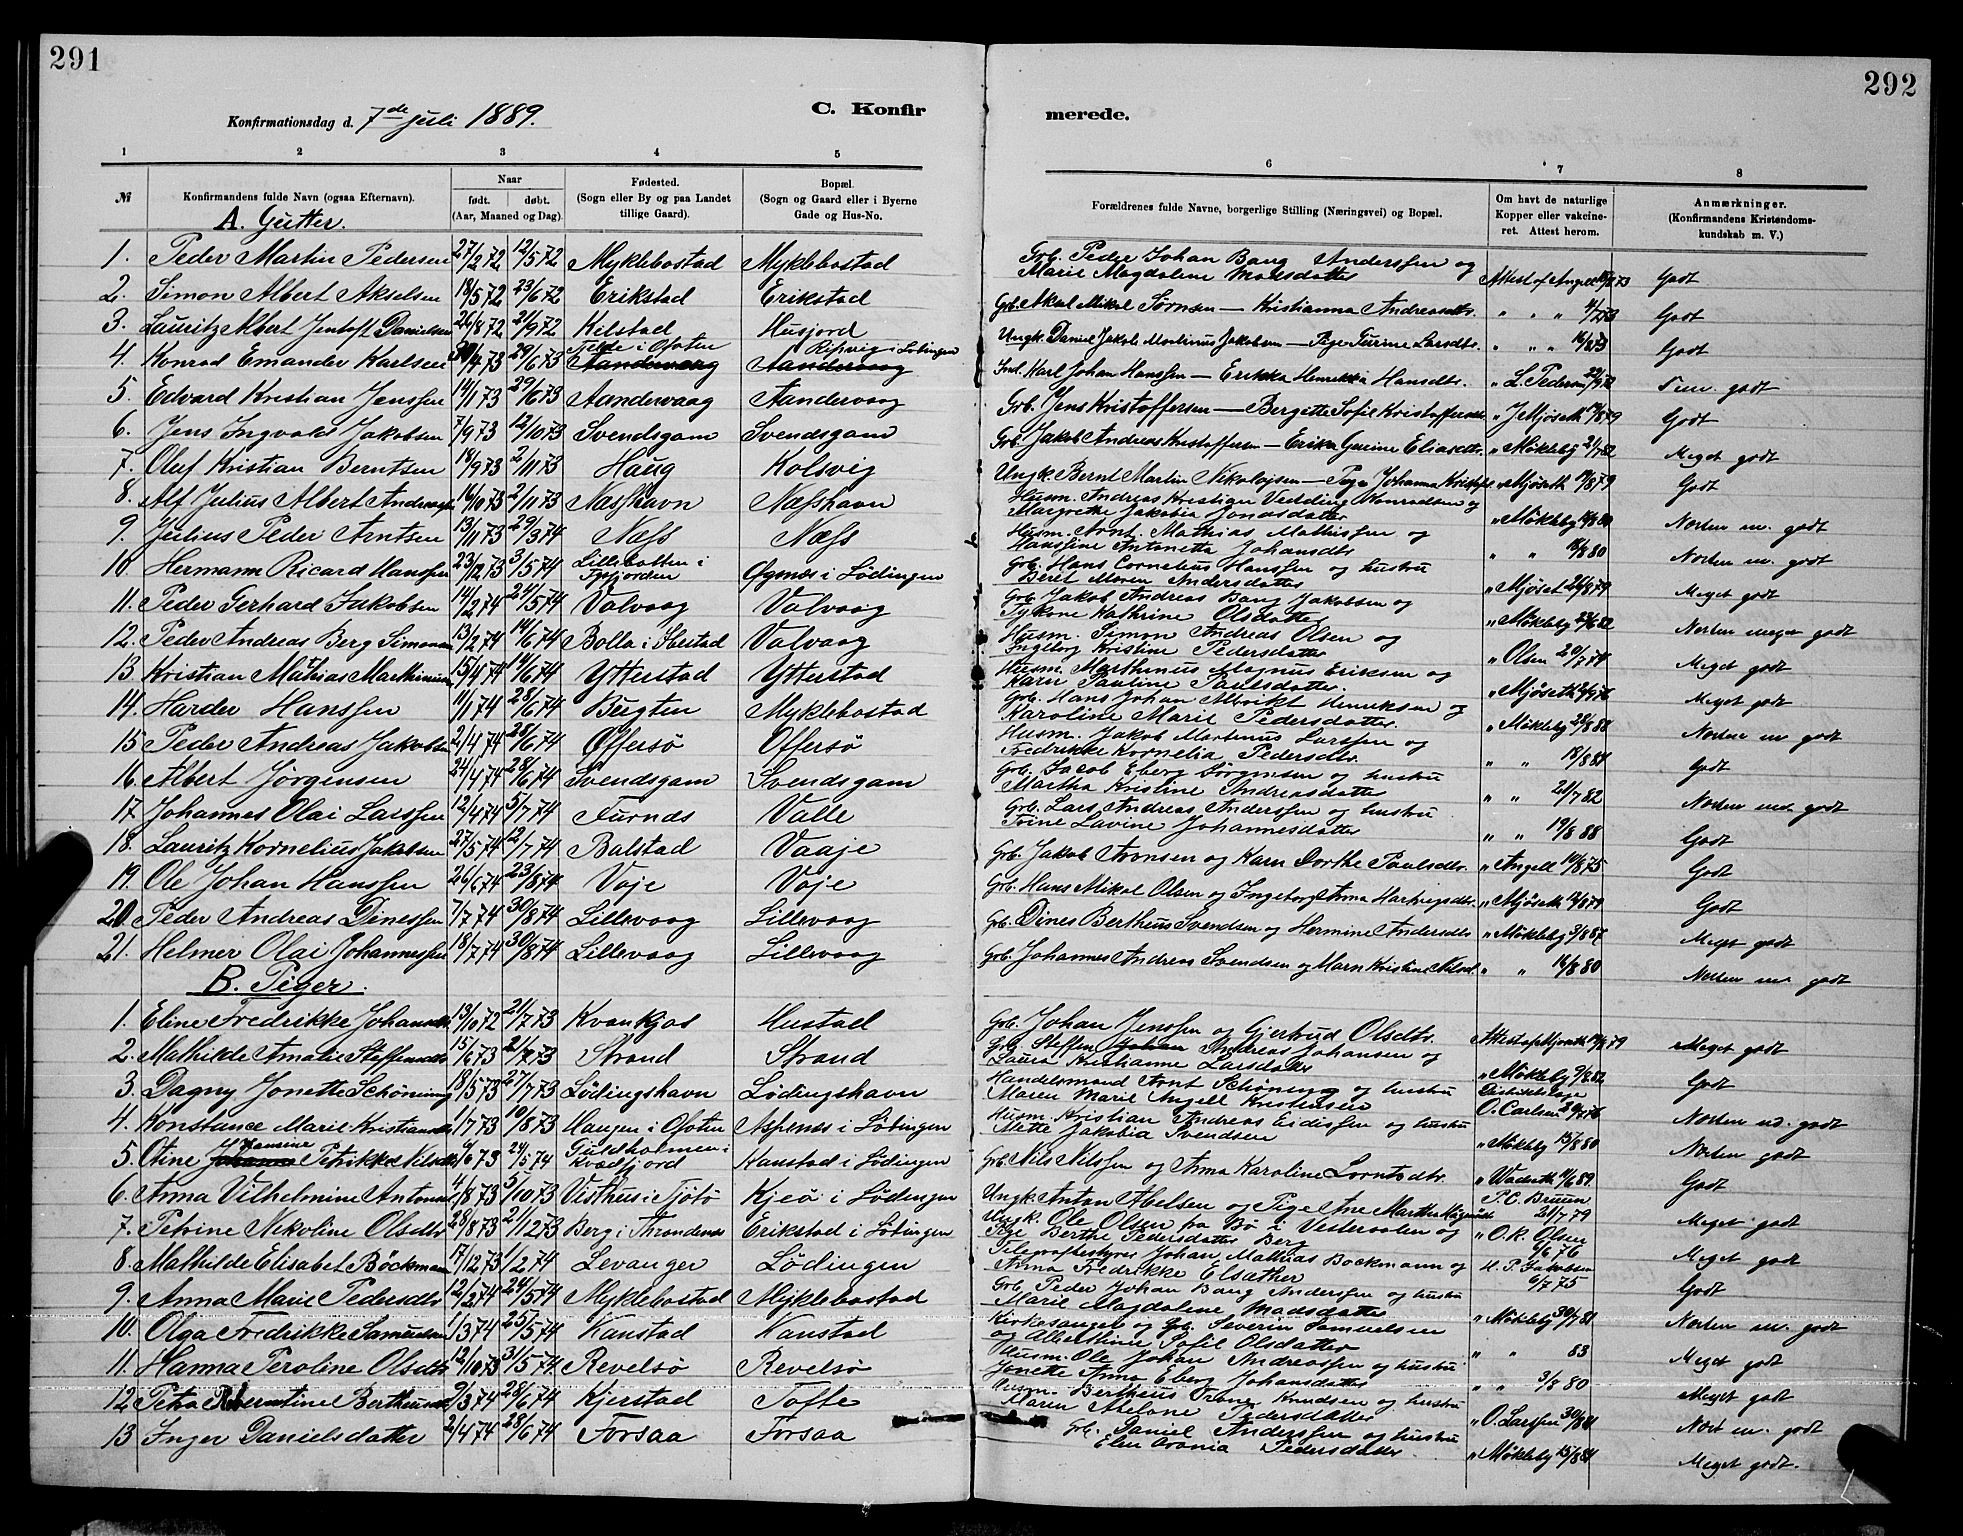 291
292
Konfirmationsdag d. 7de juli 1889.
C. Konfir
merede.
1 2 3 4 5
6 7 8
№ Konfirmandens fulde Navn (ogsaa Efternavn). Naar født. døbt. (Aar, Maaned og Dag). Fødested. (Sogn eller By og paa Landet tillige Gaard). Bopæl. (Sogn og Gaard eller i Byerne Gade og Hus-No.
Forældrenes fulde Navne, borgerlige Stilling (Næringsvei) og Bopæl. Om havt de naturlige Kopper eller vakcineret. Attest herom. Anmærkninger. (Konfirmandens Kristendomskundskab m. V.)
A. Gutter.
1. Peder Martin Pedersen 27/2 72 12/5 72 Myklebostad Myklebostad Grb. Peder Johan Bang Anderssen og Marie Magdalene Madsdatter Attest af Angell 73 Godt
2. Simon Albert Akselsen 18/5 72 23/6 72 Erikstad Erikstad Grb. Aksel Mikal Sørnsen — Kristianna Andreasdtr. " " " Godt
3. Lauritz Albert Jentoft Danielsen 26/8 72 21/9 72 Kilstad Husjord Ungk. Daniel Jakob Martinus Jakobsen — Pige Turine Larsdtr. " " " Godt
4. Konrad Emander Karlsen 30/4 73 29/6 73 i Ofoten Aandervaag Ripvig i Lødingen Aandervaag Ind. Karl Johan Hanssen — Erikka Henrikka Hansdtr. " L. Pedersen godt
5. Edvard Kristian Jenssen 14/1 73 29/6 73 Aandervaag Aandervaag Grb. Jens Kristoffersen — Bergitte Sofie Kristoffersdtr. " J Mjöseth 79 Godt
6. Jens Ingvald Jakobsen 7/9 73 12/10 73 Svendsgam Svendsgam Grb. Jakob Andreas Kristoffersen — Erika Gurine Eliasdtr. " Mökleby 2/7 82 Meget godt
7. Oluf Kristian Berntsen 18/9 73 2/11 73 Haug Kolsvig Ungk. Bernt Martin Nikolajsen — Pige Johanna " Mjöseth 79 Godt
8. Alf Julius Albert Andreassen 16/10 73 2/11 73 Næsshavn Næsshavn Husm. Andreas Kristian Vedding Konradsen og Margrethe Jakobia Jonsdatter " Mökleby 80 Nosten m. godt
9. Julius Peder Arntsen 13/11 73 29/3 74 Næss Næss Husm. Arnt Mathias Mathissen og Hanssine Antonetta Johansdtr " " 80 Nosten m. godt
10. Hermann Ricard Hanssen 23/12 73 3/5 74 Lillebotten i Tysfjorden Øgsnes i Lødingen Grb. Hans Cornelius Hanssen og hustru Beret Maren Andersdatter " Mjöset 79 Meget godt
11. Peder Gerhard Jakobsen 14/2 74 24/5 74 Valvaag Valvaag Grb. Jakob Andreas Bang Jakobsen og Kathrine Olsdatter " Mökleby 82 Nosten meget godt
12. Peder Andreas Berg Simonsen 13/2 74 14/6 74 Bolla i Ibestad Valvaag Husm. Simon Andreas Olsen og Ingeborg Kristine Pedersdatter " Olsen 20/7 74 Meget godt
13. Kristian Mathias 15/4 74 14/6 74 Ytterstad Ytterstad Husm. Marthinus Magnus Eriksen og Karn Pauline Paulsdatter. " Mjöseth Meget godt
14. Harder Hanssen 11/1 74 28/6 74 Bugten Myklebostad Grb. Hans Johan Henriksen og Karoline Marie Pedersdatter " Mökleby 88 Nosten m godt
15. Peder Andreas Jakobsen 2/4 74 28/6 74 Offersö Offersö Husm. Jakob Martinus Larssen og Fredrikke Kornelia Pedersdtr. " " Godt
16. Albert Jørgensen 24/4 74 28/6 74 Svendsgam Svendsgam Grb. Jacob Eberg Jørgensen og hustru Martha Kristine Andreasdatter " " 21/7 82 Nosten m. godt
17. Johannes Olai Larssen 12/4 74 5/7 74 Furnes Valle Grb. Lars Andreas Anderssen og hustru Trine Lavine Johannesdatter " " 19/8 88 Godt
18. Lauritz Kornelius Jakobsen 27/5 74 12/7 74 Balstad Vaaje Grb. Jakob Aronsen og Karn Dorthe Paulsdtr. " Angell 75 Godt
19. Ole Johan Hanssen 26/6 74 23/8 74 Vaje Vaje Grb. Hans Mikal Olsen og Ingeborg Anna Hartvigsdtr. " Mjöseth 79 Godt
20. Peder Andreas Dinessen 7/7 74 30/8 74 Lillevaag Lillevaag Grb. Dines Berthus Svendsen og Hermine Andersdtr " Mökleby 87 Meget godt
21. Helmer Olai Johannessen 18/7 74 30/8 74 Lillevaag Lillevaag Grb. Johannes Andreas Svendsen og Marn Kristine " " 80 Nosten m. godt
B. Piger.
1. Eline Fredrikke 13/10 72 21/7 73 Kvankjos Hustad Grb. Johan Jenssen og Gjertrud Olsdtr. Attest af Mjöseth 79 Meget godt
2. Mathilde Amalie Steffensdtr 15/6 73 21/7 73 Strand Strand Grb. Steffen Johan Andreas Johansen og Laura Kristianne Larsdatter " Mökleby 82 Godt
3. Dagny Jonette Schöning 18/5 73 27/7 73 Lødingshavn Lødingshavn Handelsmand Arnt Schöning og hustru Maren Marie Angell Kristensen Distriktslæge O. Carlsen Nosten m. godt
4. Konstance Marie Kristiansdtr 1/7 73 10/8 73 Haugen i Ofoten Aspenes i Lødingen Husm. Kristian Andreas Eidissen og hustru Mette Jakobia Svendsen " Mökleby 80 Nosten godt
5. Otine Johanna Hansine Petrikke Nilsdtr 6/6 73 24/5 74 Guldholmen i Kvædfjord Kanstad i Lødingen Grb. Nils Nilssen og Anna Karoline dtr. " 89. Godt
6. Anna Vilhelmine Antonsdtr 4/8 73 5/10 73 Visthus i Tjötö Kjeö i Lødingen Ungk. Anton Abelsen og Pige Ane Martha P. C. Bruun 79 Meget godt
7. Petrine Nikoline Olsdtr 28/8 73 21/12 73 Berg i Throndenes Erikstad i Lødingen Ungk. Ole Olsen fra Bø i Vesteraalen og Pige Berthe Pedersdatter Berg " O. K. Olsen 76 Meget godt
8. Mathilde Elisabet Böckmann 17/12 73 1/2 74 Levanger Lödingen Telegrafbestyrer Johan Mathias Bockmann og Anna Fredrikke Elsæther P. Jakobsen 6/7 75 Godt
9. Anna Marie Pedersdtr 12/2 74 24/5 74 Myklebostad Myklebostad Grb. Peder Johan Bang Anderssen og hustru Marie Magdalene Madsdatter " Mökleby 30/7 81 Nosten m. godt
10. Olga Fredrikke Samuelsen 1/3 74 25/5 74 Kanstad Kanstad Kirkesanger og Grb. Severin Samuelsen og Albertine Sofie Olsdatter " " 83 Meget godt
11. Hanna Peroline Olsdtr 12/10 73 31/5 74 Revelsö Revelsö Husm. Ole Johan Andreassen og hustru Jonette Anna Eberg Johansdatter " " 3/8 80 Meget godt
12. Petra Berntine Berthusdtr 9/3 74 28/6 74 Kjerstad Tofte Husm. Bertheus Trane Knudsen og hustru Maren Pedersdatter " O. Larssen Nost m. godt
13 Inger Danielsdatter 2/4 74 28/6 74 Forsaa Forsaa Grb. Daniel Anderssen og hustru Elen Pedersdatter. " Mökleby Meget godt.